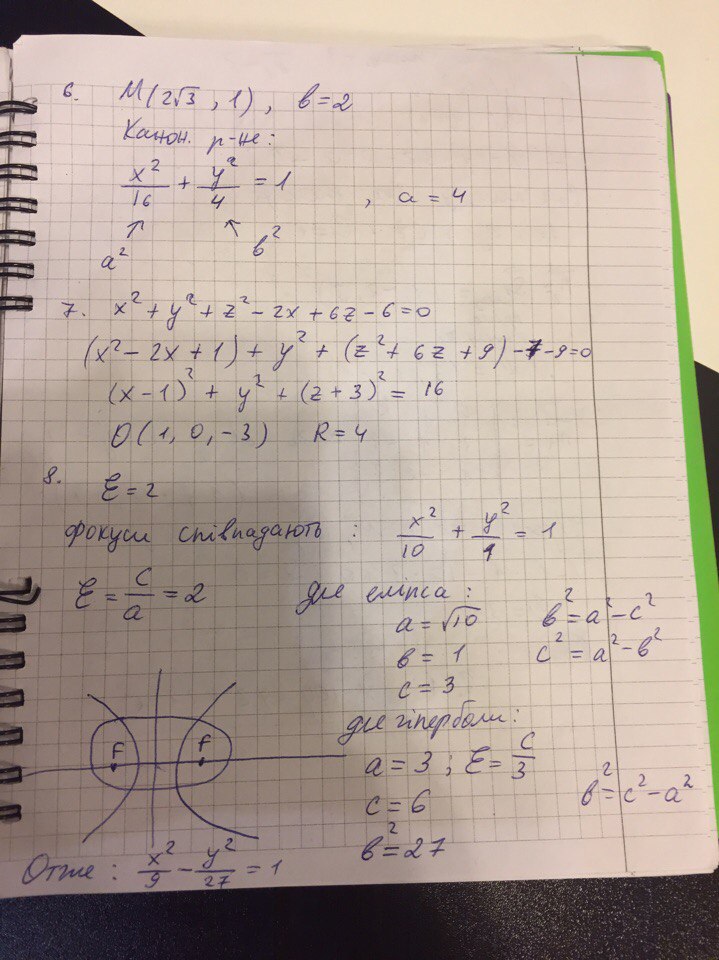 6. M(2√3, 1), в=2
Канон. р-не:
x²/16 + y²/4 = 1, a = 4
a² в²
7. x² + y² + z² - 2x + 6z - 6 = 0
(x² - 2x + 1) + y² + (z² + 6z + 9) - 7 - 9 = 0
(x - 1)² + y² + (z + 3)² = 16
O(1, 0, -3) R = 4
8. Ɛ = 2
фокуси співпадають : x²/10 + y²/1 = 1
Ɛ = c/a = 2
для еліпса :
a = √10 в² = a² - c²
в = 1 c² = a² - в²
c = 3
для гіперболи :
a = 3 ; Ɛ = c/3
c = 6 в² = c² - a²
в² = 27
F F
Отже : x²/9 - y²/27 = 1